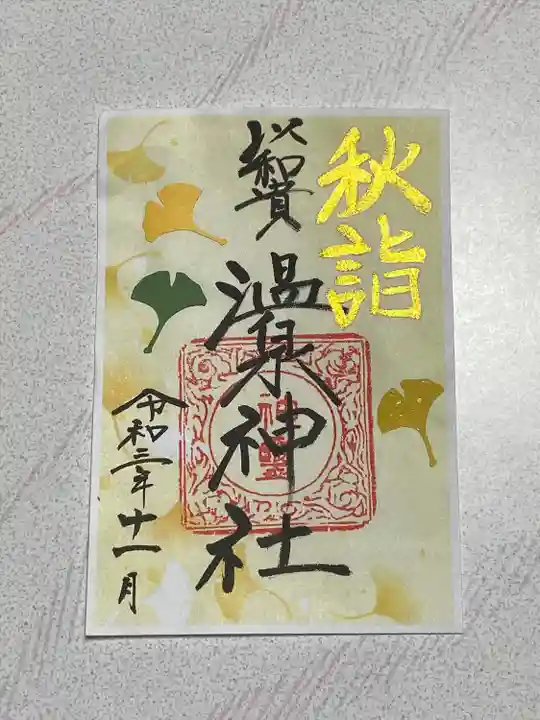 秋詣
温泉神社
神璽
令和三年十一月